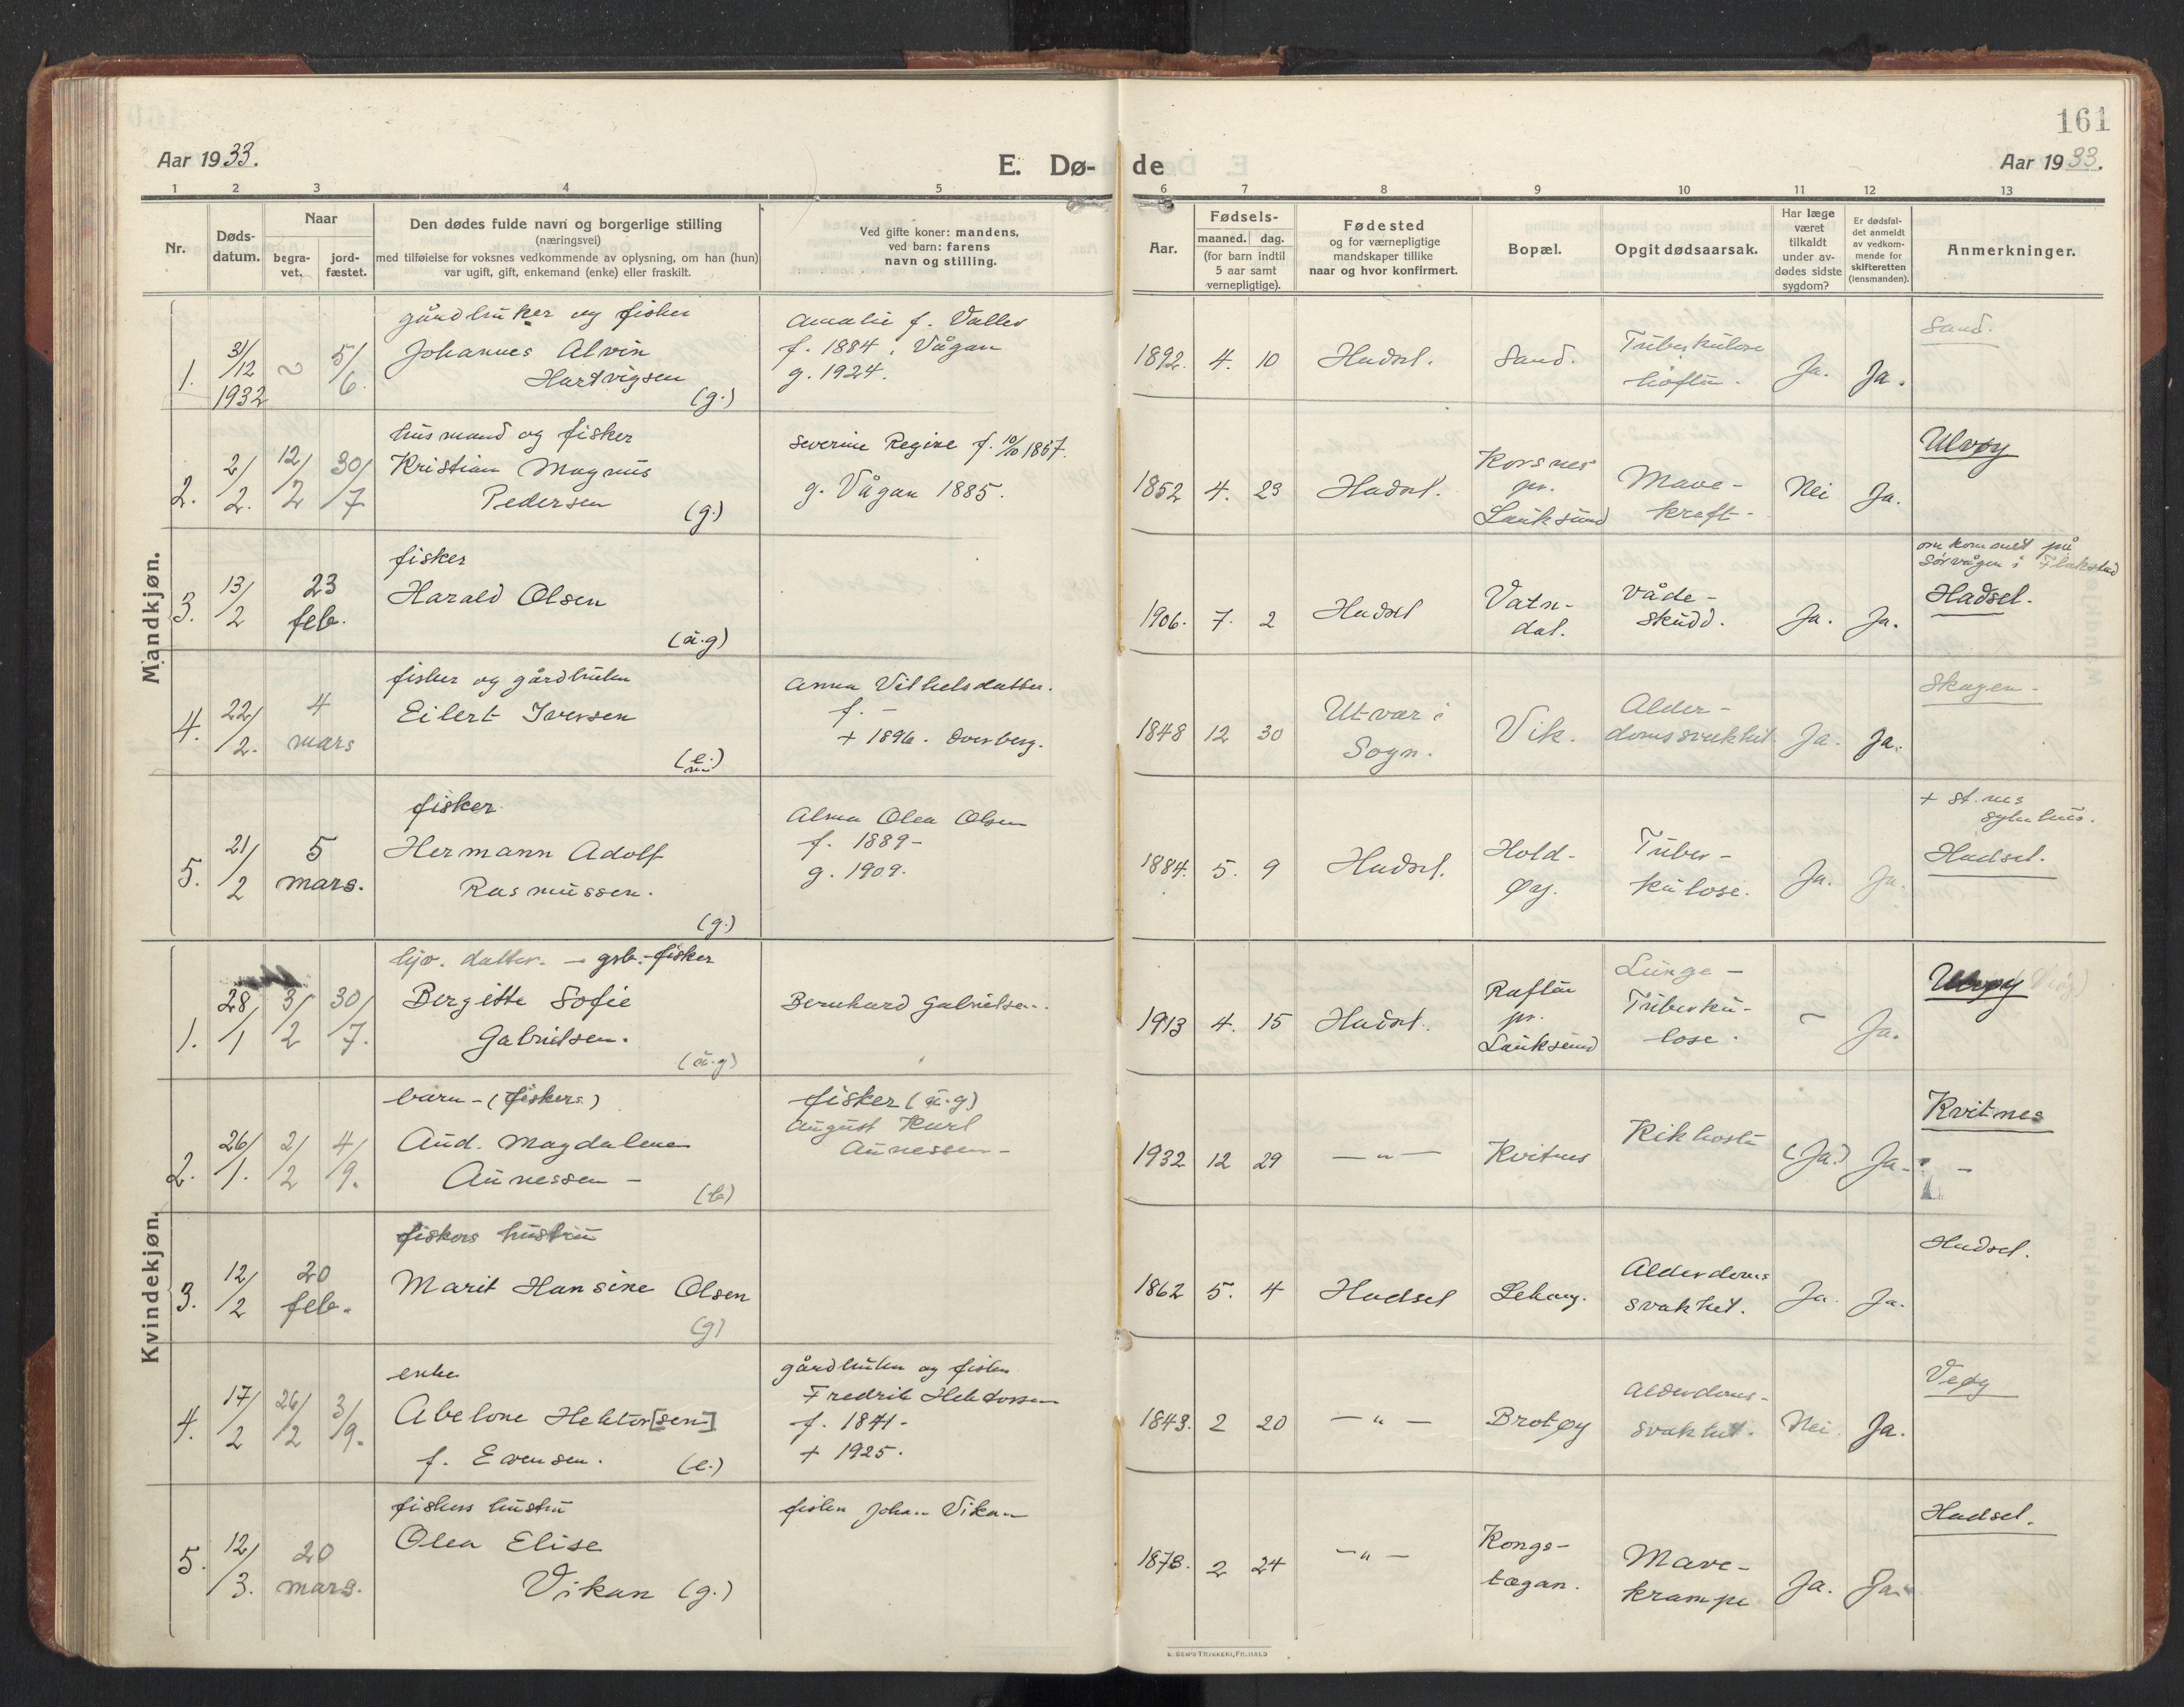 161
Aar 1933.
E. Dø-
de
Aar 1933.
1 2 3 4 5 6 7 8 9 10 11 12 13
Nr.
Døds-
datum.
Naar
begra-
vet.
jord-
fæstet.
Den dødes fulde navn og borgerlige stilling
(næringsvei)
med tilføielse for voksnes vedkommende av oplysning, om han (hun)
var ugift, gift, enkemand (enke) eller fraskilt.
Ved gifte koner: mandens,
ved barn: farens
navn og stilling.
Aar.
Fødsels-
maaned. dag.
(for barn indtil
5 aar samt
vernepligtige).
Fødested
og for værnepligtige
mandskaper tillike
naar og hvor konfirmert.
Bopæl.
Opgit dødsaarsak.
Har læge
været
tilkaldt
under av-
dødes sidste
sygdom?
Er dødsfal-
det anmeldt
av vedkom-
mende for
skifteretten
(lensmanden).
Anmerkninger.
Mandkjøn.
1.
31/12
1932
5/6.
gårdbruker og fisker
Johannes Alvin
Hartvigsen
(g.)
Amalie f. Valler
f. 1884, Vågan
g. 1924.
1892. 4. 10
Hadsel.
Sand.
Tuberkulose
hoften.
Ja.
Ja.
Sand.
2.
2/2.
12/2
30/7
husmand og fisker
Kristian Magnus
Pedersen
(g.)
Severine Regine f. 10/10 1867.
g. Vågan 1885.
1852 4. 23
Hadsel.
Korsnes
pr.
Lauksund
Mave-
kreft-
Nei
Ja.
Ulvøy
3.
13/2
23
feb.
fisker
Harald Olsen
(u.g)
1906. 7. 2
Hadsel
Vatn-
dal.
Våde-
skudd.
Ja.
Ja.
omkommet på
Sørvågen i Flakstad
Hadsel.
4.
22/2.
4
mars
fisker og gårdbruker
Eilert Iversen
(e.)
Anna Vilhelsdatter.
f. -
+ 1896. Overberg.
1848 12 30
Utvær i
Sogn.
Vik.
Alder-
domssvakhet.
Ja.
Ja.
Skagen-
5.
21/2
5
mars.
fisker
Hermann Adolf
Rasmussen.
(g.)
Alma Olea Olsen
f. 1889-
g. 1909.
1884. 5. 9
Hadsel.
Hold-
Øy.
Tuber-
kulose.
Ja.
Ja.
+ St.nes
sykehus.
Hadsel.
Kvindekjøn.
1.
28/1
3/2
30/7.
hjv. datter. - grb.-fisker
Bergitte Sofie
Gabrielsen.
(u.g)
Bernhard Gabrielsen.
1913 4. 15
Hadsel.
Raften
pr.
Lauksund
Lunge-
Tuberku-
lose.
~
Ja.
Ulvøy
2.
26/1.
2/2
4/9.
barn - (fiskers)
Aud. Magdalene
Aunessen -
(b)
fisker (u.g)
August Karl
Aunessen -
1932 12 29
— " —
Kvitnes
Kikhoste
(Ja.)
Ja-
Kvitnes
-
3.
12/2
20
feb.
fiskers hustru
Marit Hansine Olsen
(g)
1862 5. 4
Hadsel
Lekang.
Alderdoms
svakhet.
Ja.
Ja.
Hadsel.
4.
17/2
26/2
3/9.
enke
Abelone Hektor[sen]
f. Evensen.
(e.)
gårdbruker og fisker
Fredrik Hektorsen
f. 1841-
+ 1925.
1843. 2 20
— " —
Brotøy
Alderdoms-
svakhet.
Nei.
Ja.
Veøy
5.
12/3.
20
mars.
fiskers hustru
Olea Elise
Vikan (g.)
fisker Johan Vikan
1873. 2 24
— " —
Kongs-
tægan.
Mave-
krampe
Ja.
Ja.
Hadsel.